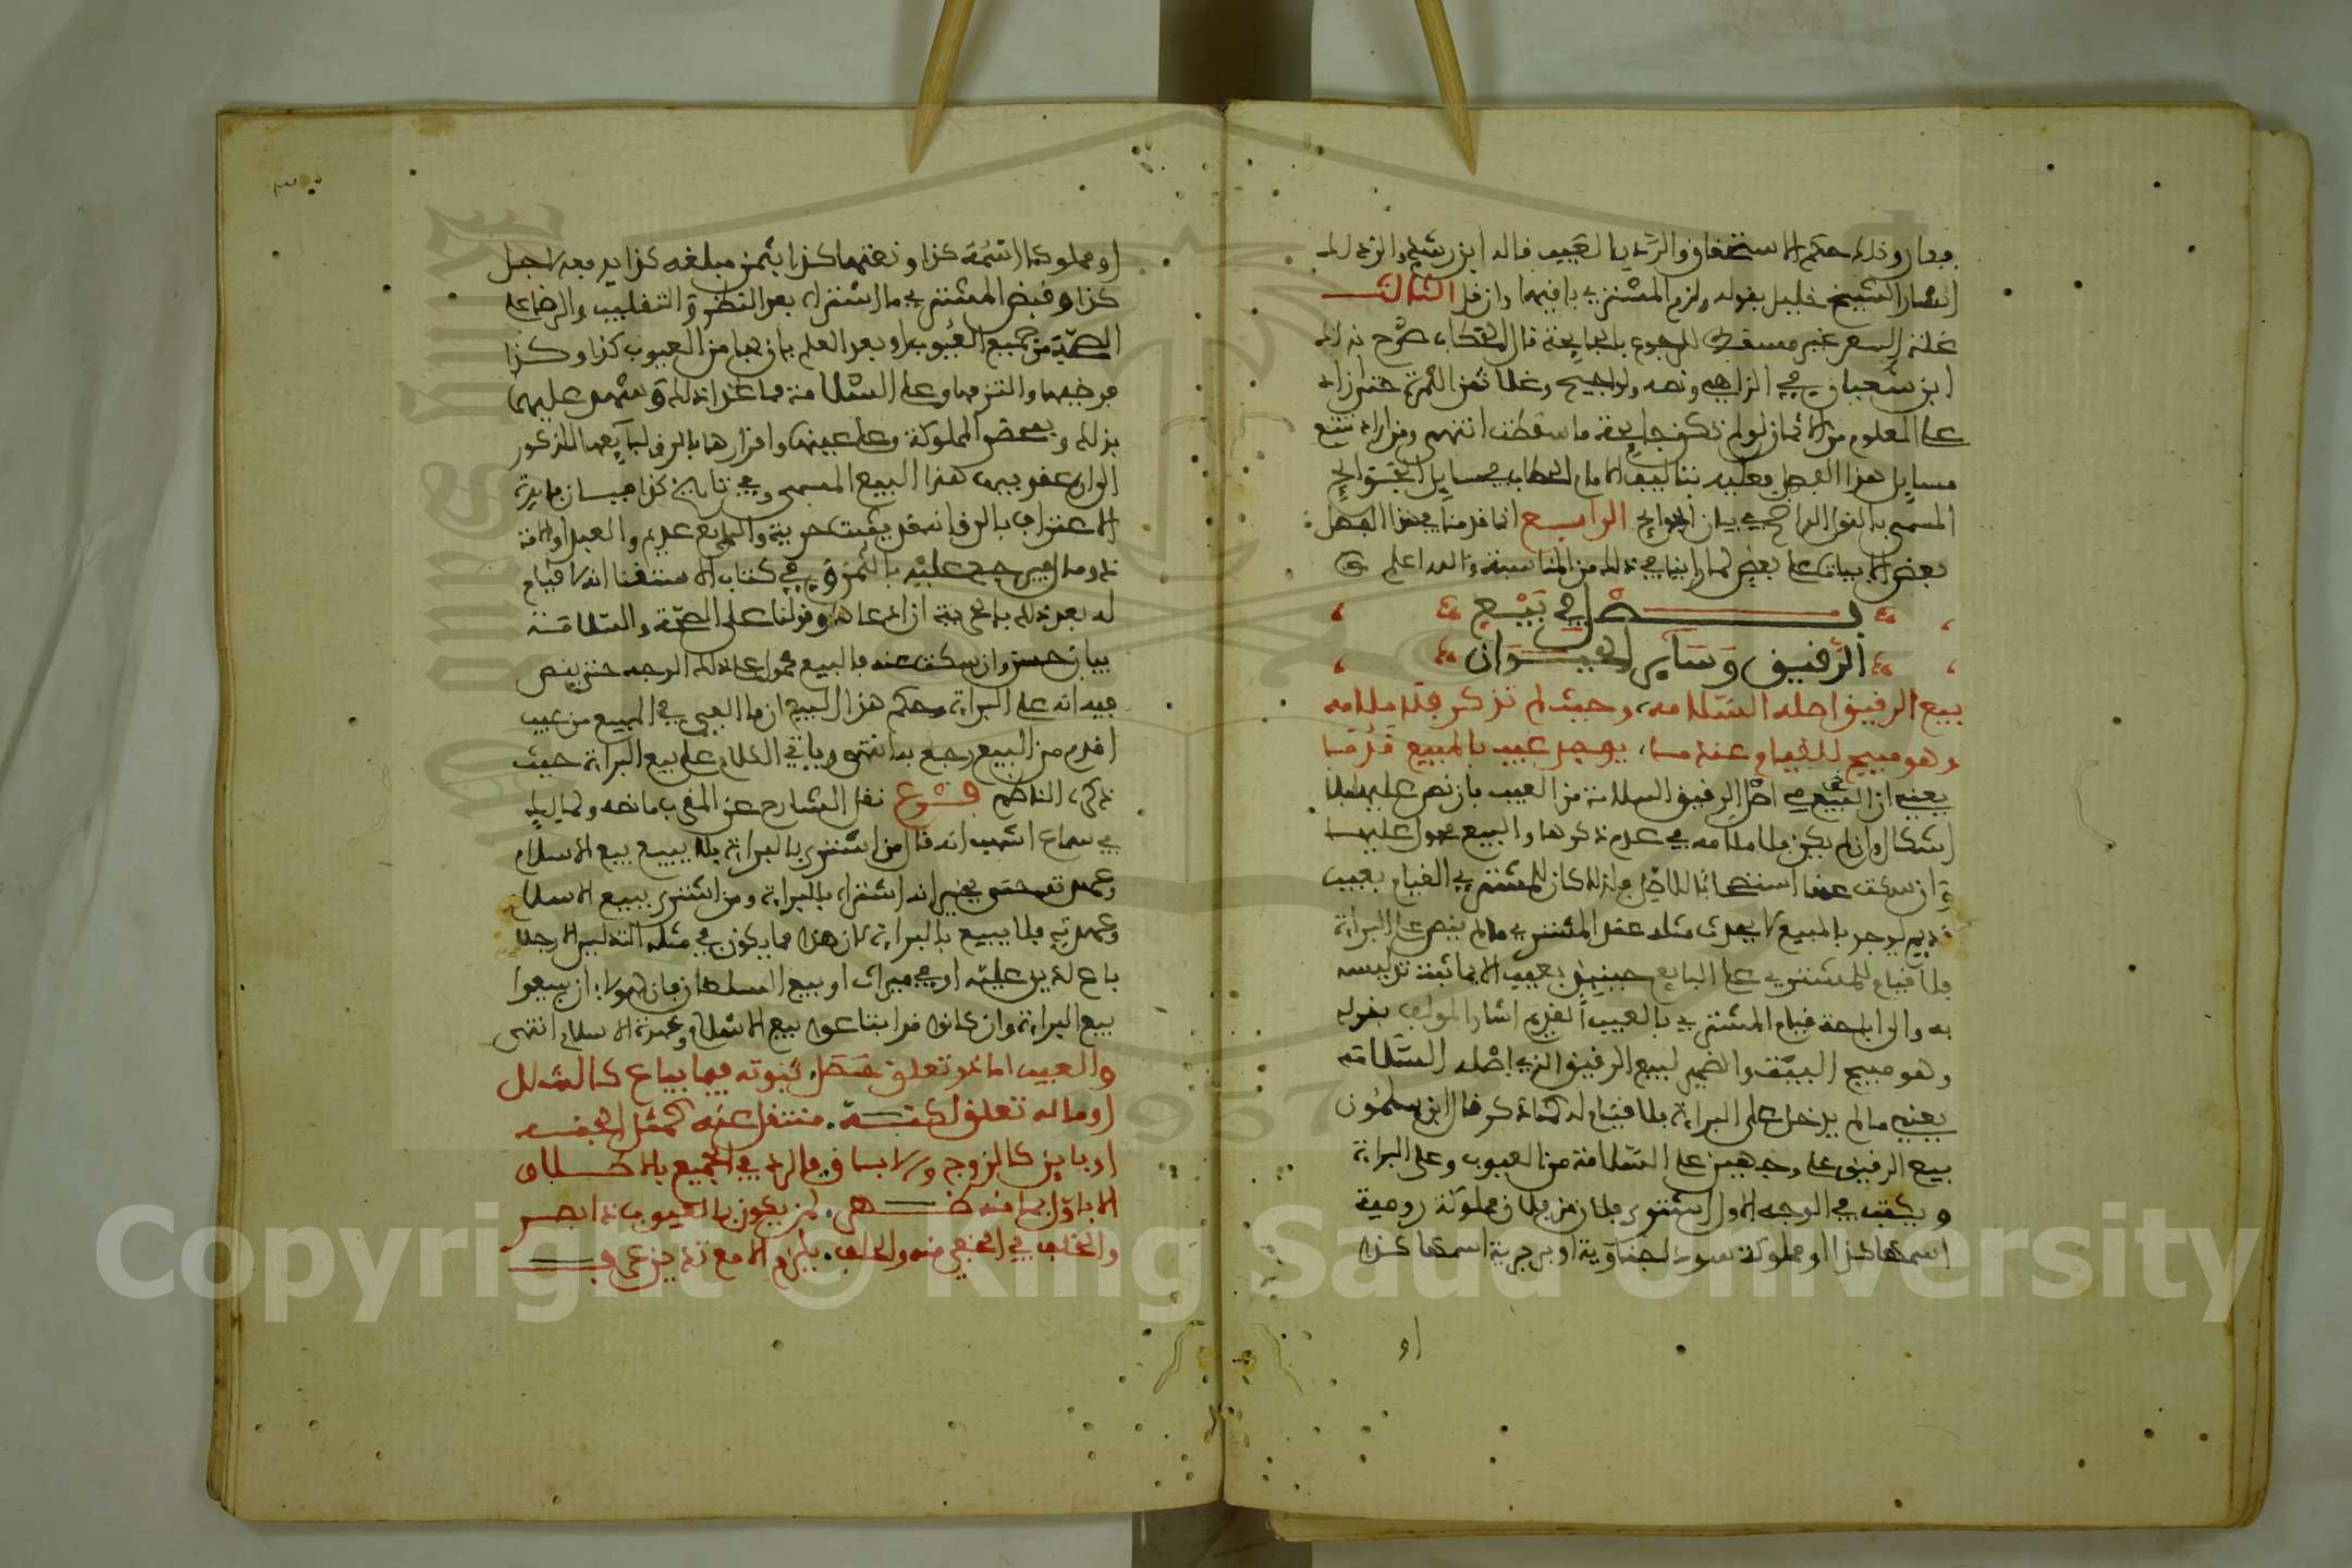 ففارق ذلك حكم الاستحقاق والرد بالعيب قاله ابن رشد والى ذلك
اشار الشيخ خليل بقوله ولزم المشتري باقيها وان قل الثالث
غلاء السعر غير مسقط للرجوع بالجايحة قال الحطاب صرح بذلك
ابن شعبان في الزاهي ونصه ولو اجيح وغلا ثمن الثمرة حتى زاد
على المعلوم من الاثمان لو لم تكن جايحة ما سقطت انتهى ومن اراد تتبع
مسايل هذا الفصل فعليه بتاليف الامام الحطاب في مسايل الجوايح
المسمى بالقول الواضح في بيان الجوايح الرابع انما قدمنا في هذا الفصل
بعض الابيات على بعض لما راينا في ذلك من المناسبة والله اعلم
فصل في بيع
الرقيق وساير الحيوان
بيع الرقيق اصله السلامه، وحيث لم تذكر فلا ملامه
وهو مبيح للقيام عندما، يوجد عيب بالمبيع قدما
يعني ان البيع في اصل الرقيق السلامة من العيب بان نص عليها فلا
اشكال وان لم يكن فلا ملامه في عدم ذكرها والبيع محمول عليها
وان سكت عنها استصحابا للاصل ولذلك كان للمشتري القيام بعيب
قديم يوجد بالمبيع لا يحدث مثله عند المشتري ما لم ينص على البراءة
فلا قيام للمشتري على البايع حينئذ بعيب الا بما ثبت تدليسه
به والى اباحة قيام المشتري بالعيب القديم اشار المولف بقوله
وهو مبيح البيت والضمير لبيع الرقيق الذي اصله السلامه
يعني ما لم يدخل على البراءة فلا قيام له كما ذكر قال ابن سلمون
بيع الرقيق على وجهين على السلامة من العيوب وعلى البراءة
ويكتب في الوجه الاول اشترى فلان من فلان مملوكة رومية
اسمها كذا او مملوكة سوداء جناوية او بربرية اسمها كذا
او
او مملوكا اسمه كذا ونعتها كذا بثمن مبلغه كذا يدفعه لاجل
كذا وقبض المشتري ما اشتراه بعد النظر والتقليب والرضى على
الصحة من جميع العيوب او بعد العلم بان بها من العيوب كذا وكذا
فرضيها والتزمها وعلى السلامة مما عدا ذلك وشهد عليهما
بذلك وبمحضر المملوكة وعلى عينها واقرارها بالرق لبايعها المذكور
الى ان عقد فيها هذا البيع المسمى وفي تاريخ كذا فبيان فايدة
الاعتراف بالرق انه قد يثبت حرية والبايع عديم والعبد او الامة
ذو مال فيرجع عليه بالثمن وفي كتاب الاستغناء انه لا قيام
له بعد ذلك بالحرية ان ادعاها وقولنا على الصحة والسلامة
بيان حسن وان سكت عنه فالبيع محمول على ذلك الوجه حتى ينص
فيه انه على البراءة وحكم هذا البيع ان ما الفي في المبيع من عيب
اقدم من البيع رجع به انتهى وياتي الكلام على بيع البراءة حيث
ذكره الناظم فروع نقل الشارح عن المقرب ما نصه وقال ليه
في سماع اشهب انه قال من اشترى بالبراءة فلا يبيع بيع الاسلام
وعهدته حتى يخبر انه اشتراه بالبراءة ومن اشترى ببيع الاسلام
وعهدته فلا يبيع بالبراءة لان هذا مما يكون في مثله التدليس الا رجلا
باع لدين عليه او في ميراث او بيع السلطان فان لهولاء ان يبيعوا
بيع البراءة وان كانوا قد ابتاعوا بيع الاسلام وعهدة الاسلام انتهى
والعيب اما ذو تعلق حصل، ثبوته فيما يباع كالشلل
او ما له تعلق لكنه، منتقل عنه كمثل الجنه
او باين كالزوج والاباق فالرد في الجميع بالاطلاق
الا باول بما منه ظهر، لمن يكون بالعيوب ذا بصر
والخلف في الخفي منه والحلف، يلزم الا مع تدين عرف